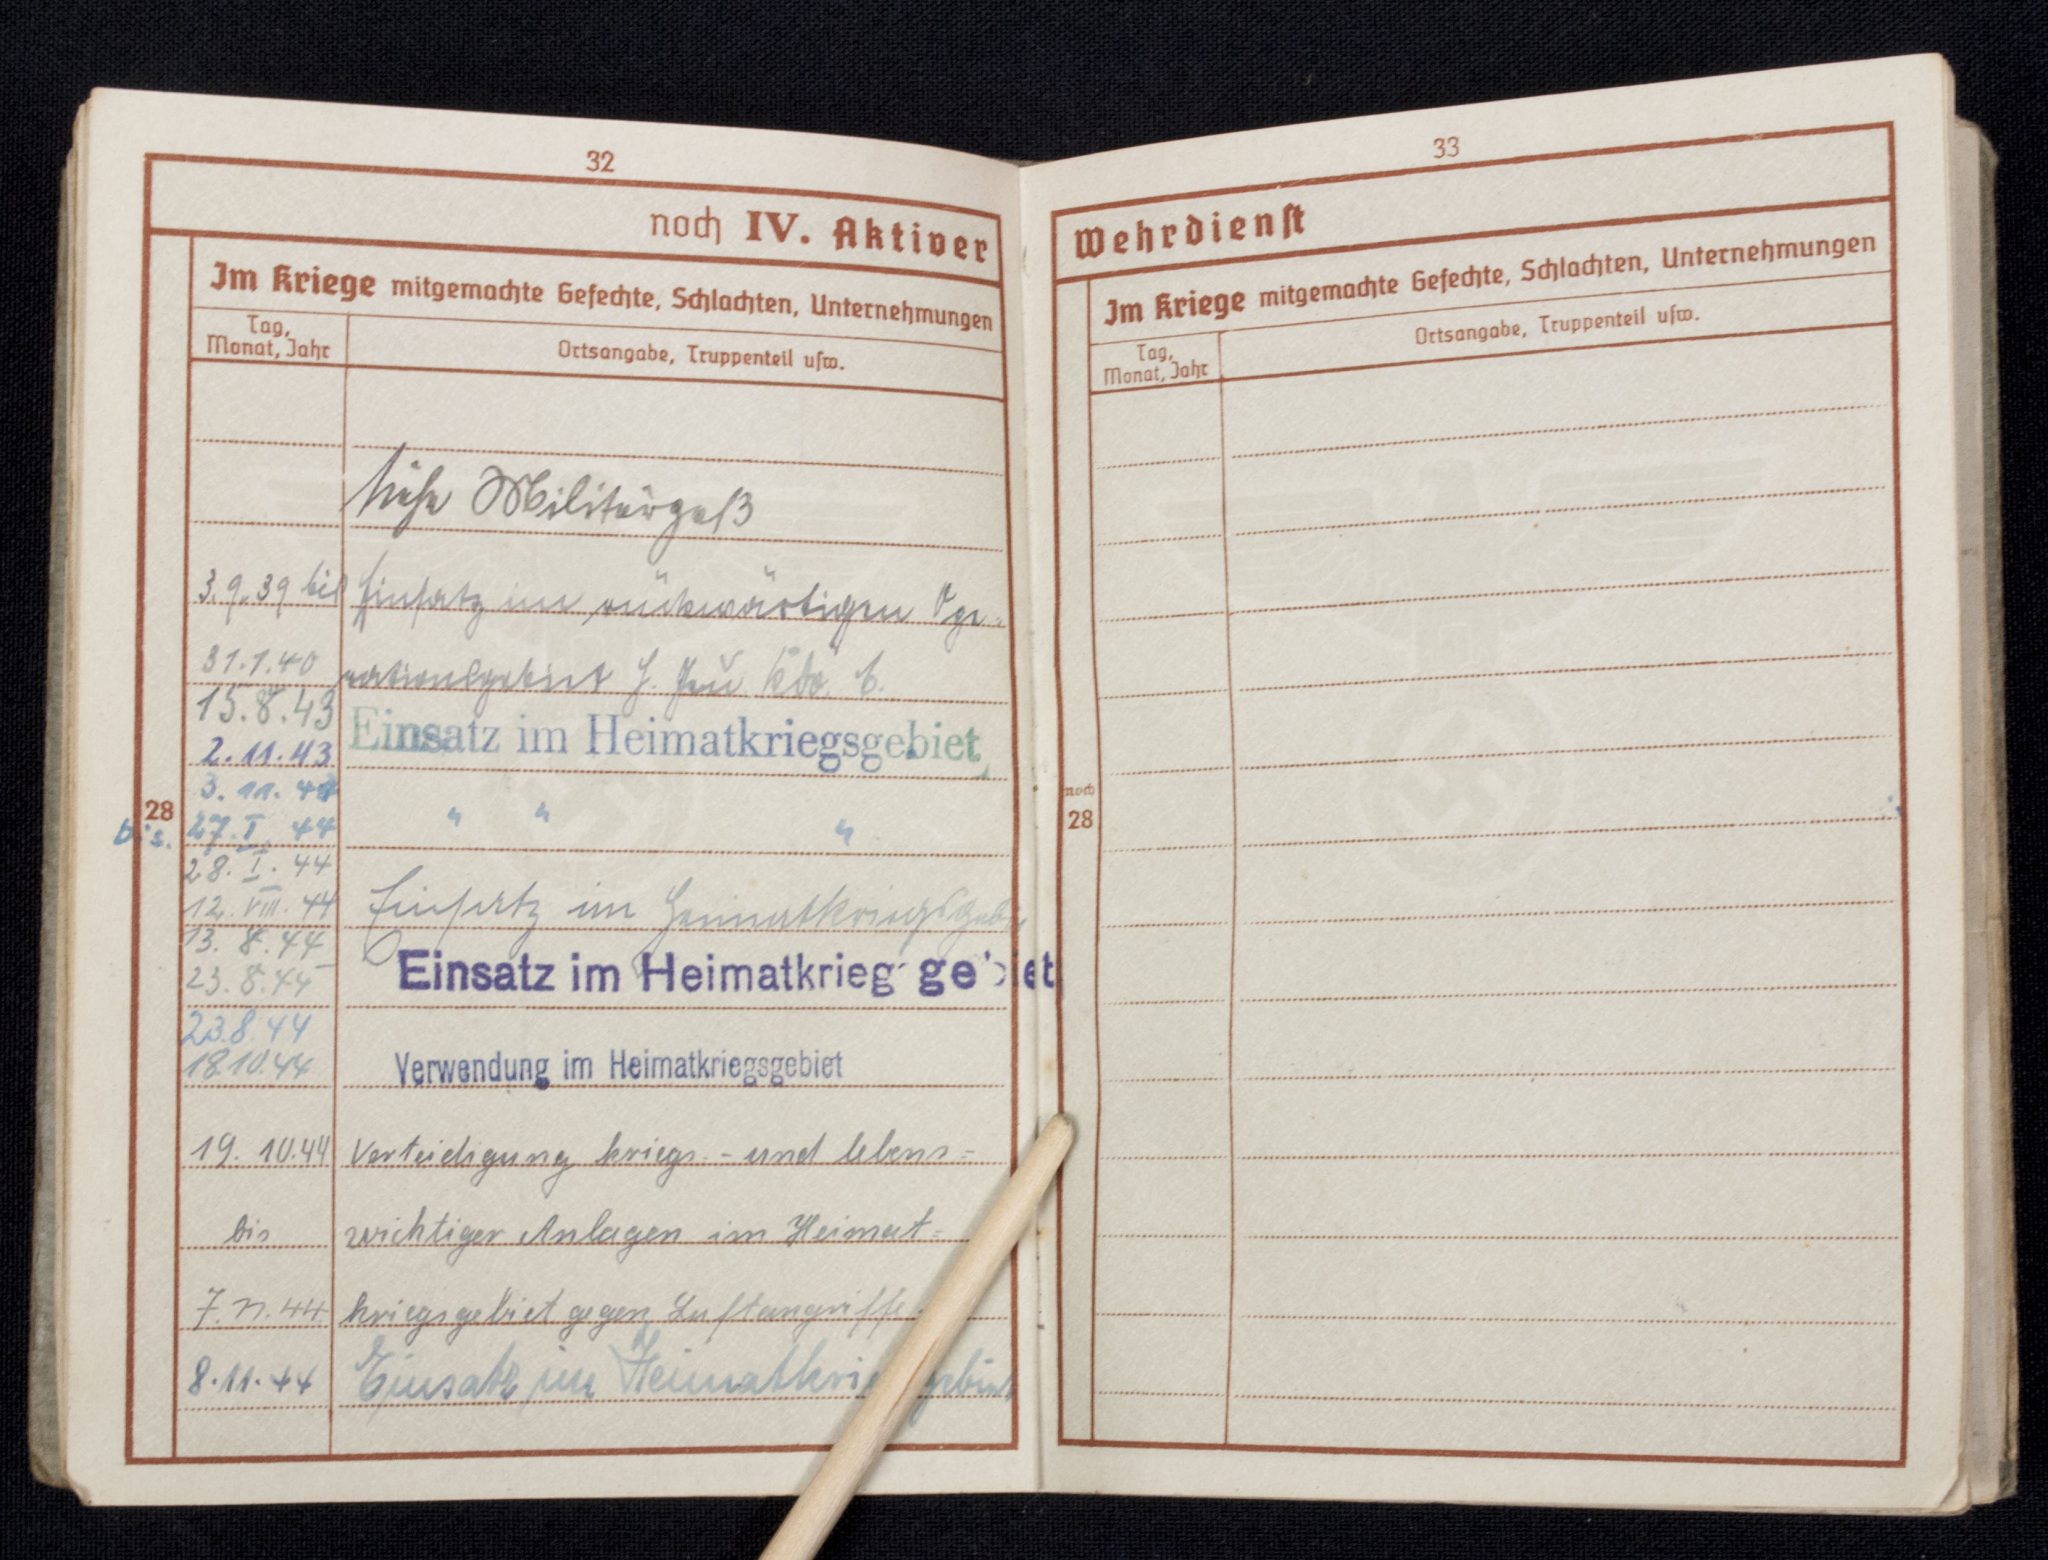 32
noch IV. Aktiver
Im Kriege mitgemachte Gefechte, Schlachten, Unternehmungen
Tag,
Monat, Jahr
Ortsangabe, Truppenteil usw.
siehe Militärpaß
3.9.39 bis Einsatz im rückwärtigen Ope-
31.1.40 rationsgebiet
15.8.43
Einsatz im Heimatkriegsgebiet
2.11.43
3. 11. 43
28
bis. 27. I. 44 " " "
28. I. 44
12. VIII. 44 Einsatz im Heimatkriegsgebiet
13. 8. 44
Einsatz im Heimatkriegsgebiet
23. 8. 44
23.8.44
Verwendung im Heimatkriegsgebiet
18.10.44
19. 10.44 Verteidigung kriegs- und lebens=
bis wichtiger Anlagen im Heimat=
7. 11. 44 kriegsgebiet gegen Luftangriffe
8.11.44 Einsatz im Heimatkriegsgebiet
33
Wehrdienst
Im Kriege mitgemachte Gefechte, Schlachten, Unternehmungen
Tag,
Monat, Jahr
Ortsangabe, Truppenteil usw.
noch
28